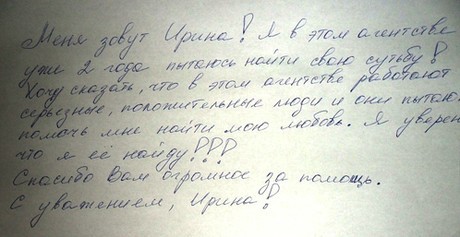 Меня зовут Ирина! Я в этом агентстве
уже 2 года пытаюсь найти свою сутьбу!
Хочу сказать, что в этом агентстве работают
серьезные, положительные люди и они пытаю
помочь мне найти мою любовь. Я уверен
что я её найду!!!
Спасибо Вам огромное за помощь.
С уважением, Ирина!